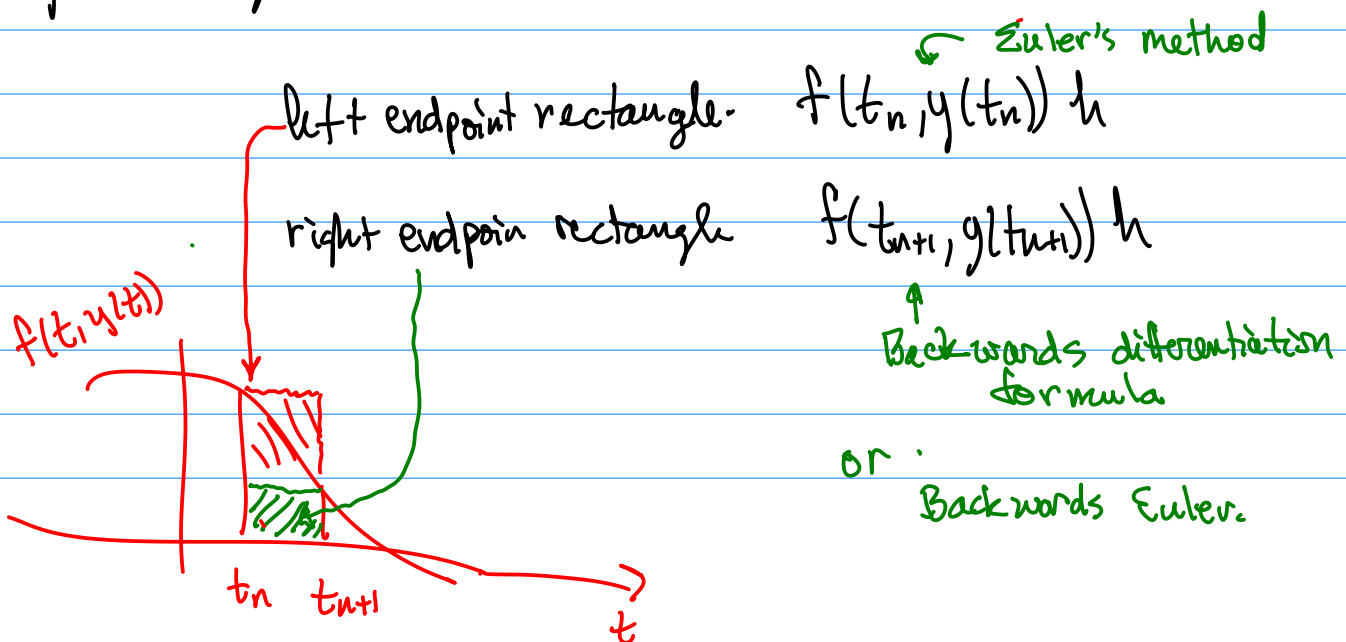 Euler's method
left endpoint rectangle. f(tₙ, y(tₙ)) h
right endpoin rectangle f(tₙ₊₁, y(tₙ₊₁)) h
f(t, y(t))
Backwards differentiation
formula
or
Backwords Euler.
tₙ tₙ₊₁
t